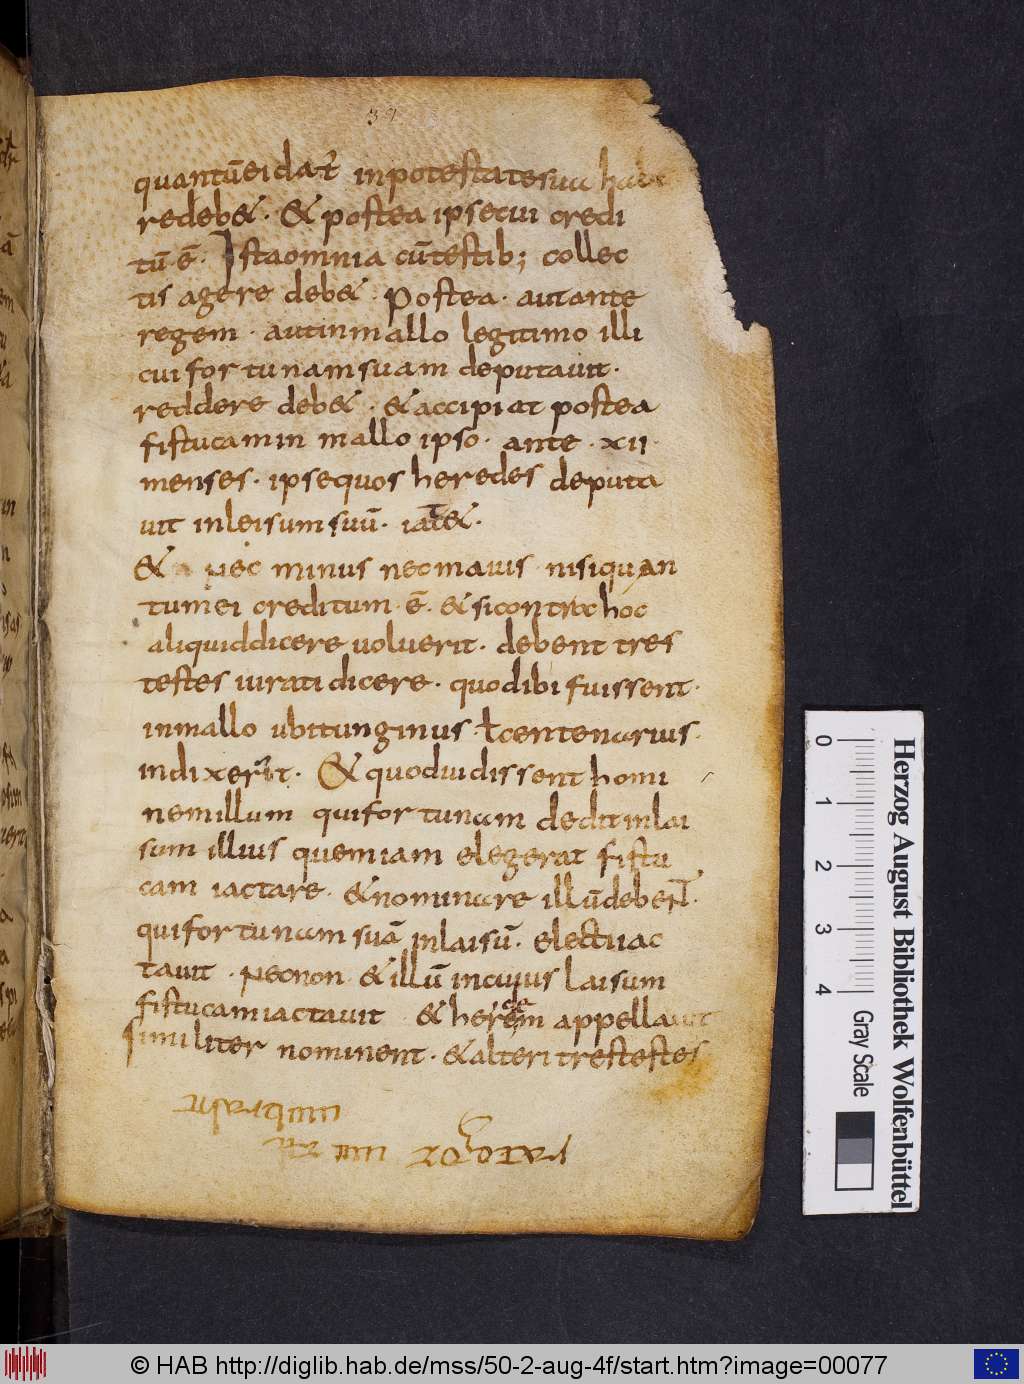 39
quantū ei dat in potestate sua habe
re deb&. & postea ipse cui credi
tū ē. Ista omnia cū testib; collec
tis agere deb&. Postea. aut ante
regem. aut in mallo legitimo illi
cui fortunam suam deputauit.
reddere deb&. & accipiat postea
fistucam in mallo ipso. ante. xii.
menses. ipse quos heredes deputa
uit in leisum suū. iact&.
& nec minus nec maius nisi quan
tum ei creditum. ē. & si contra hoc
aliquid dicere uoluerit. debent tres
testes iurati dicere. quod ibi fuissent.
in mallo ubi tunginus. ł centenarius.
indixerit. & quod uidissent homi
nem illum qui fortunam dedit in lai
sum illius quem iam elegerat fistu
cam iactare. & nominare illū debent.
qui fortunam suā in laisū. electi iac
tauit. necnon & illū in cuius laisum
fistucam iactauit & herem appellauit
similiter nominent. & alteri tres testes
0 1 2 3 4
Gray Scale
Herzog August Bibliothek Wolfenbüttel
© HAB http://diglib.hab.de/mss/50-2-aug-4f/start.htm?image=00077